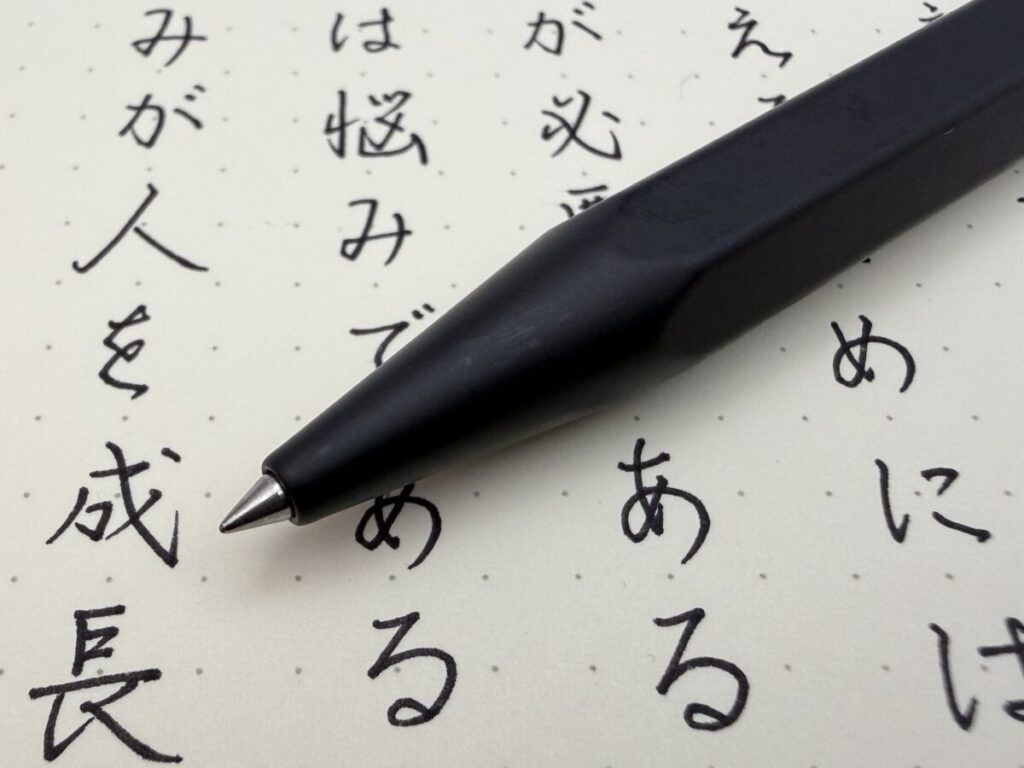 えめには
が必ある
は悩みでめる
みが人を成長